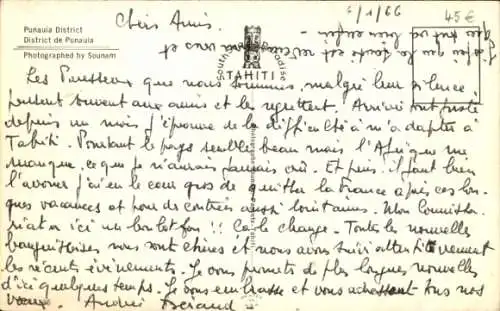 Punauia District
District de Punauia
Photographed by Sounam
6/1/66
45€
Chers Amis.
TAHITI
South
Paradise
Les Paresseux que nous sommes, malgré leur silence,
pensent souvent aux amis et les regrettent. Arrivée tout juste
depuis un mois j'éprouve de la difficulté à m'adapter à
Tahiti. Pourtant le pays semble beau mais l'Afrique me
manque, ce que je n'aurais jamais crû. Et puis, il faut bien
l'avouer j'ai eu le cœur gros de quitter la France après ces lon-
gues vacances et pour de contrées aussi lointaines. Mon
ici un boulot fou !! Ca le change. Toutes les nouvelles
nous sont chères et nous avons suivi attentivement
les récents évènements. Je vous promets de plus longues nouvelles
d'ici quelques temps. Je vous embrasse et vous adressons tous nos
vœux. Andrée